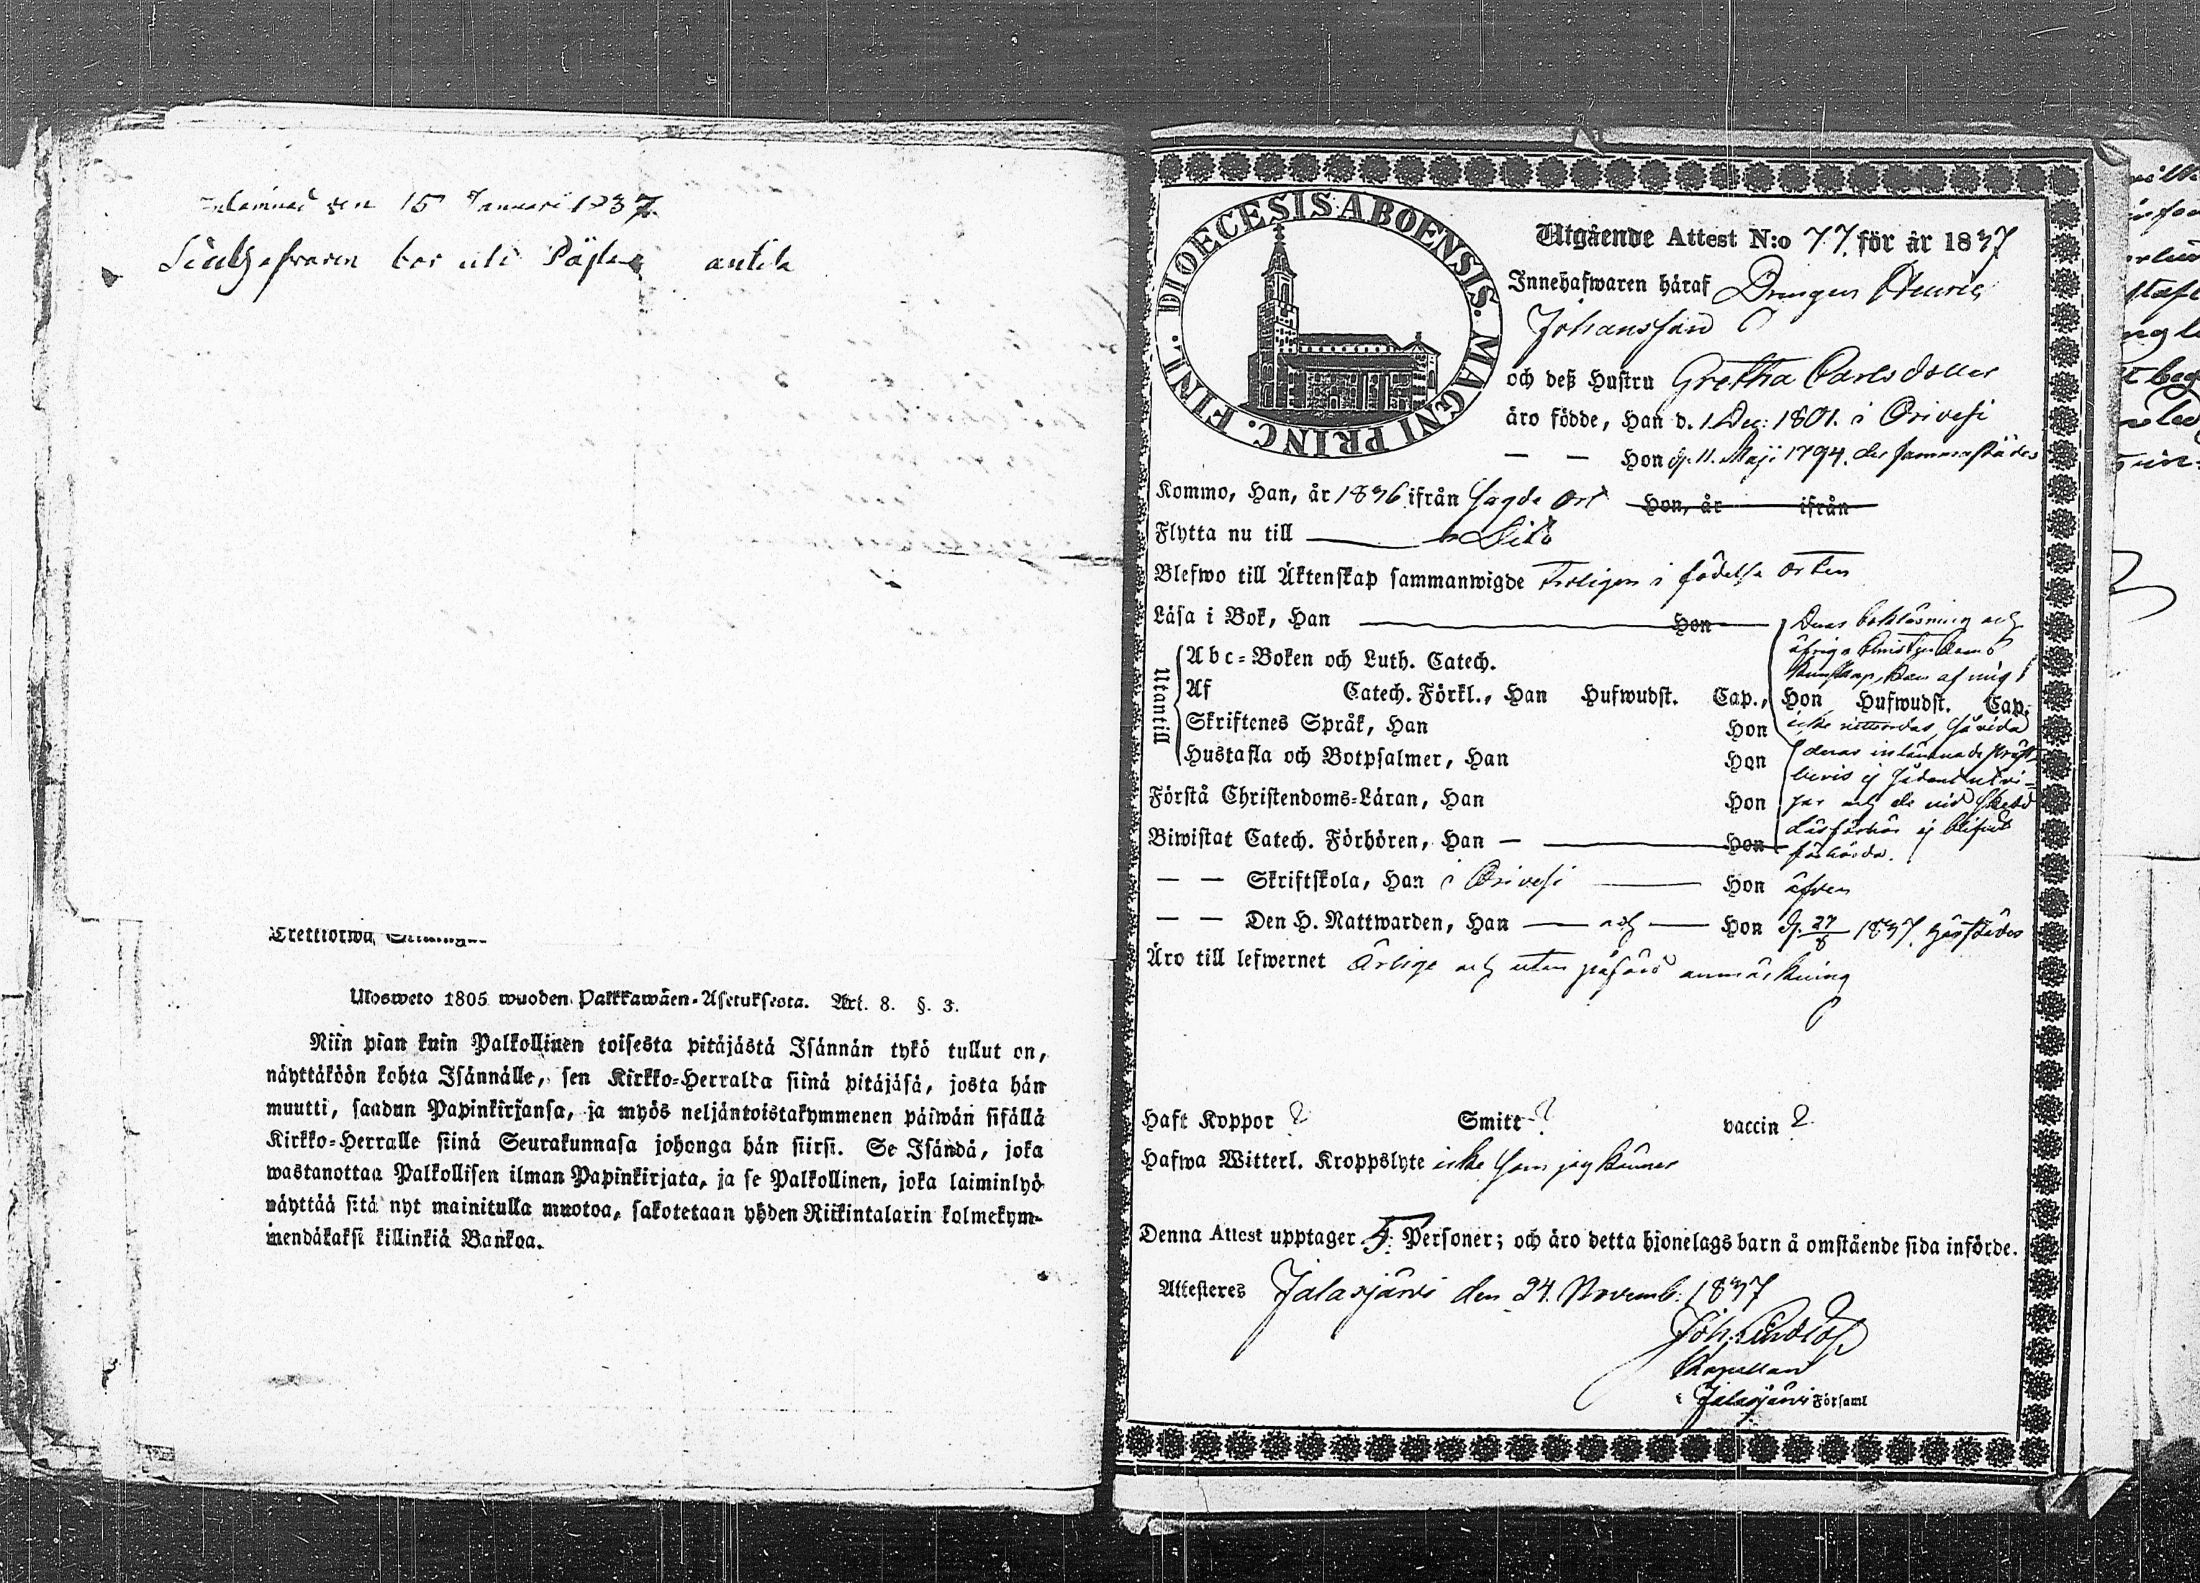 Inlämnad den 15 Januari 1837.
bor uti
Trettiotwå Skillingar
Ulosweto 1805 wuoden Palkkawäen-Asetuksesta. Art. 8. §. 3.
Niin pian kuin Palkollinen toisesta pitäjästä Isännän tykö tullut on,
näyttäköön kohta Isännälle, sen Kirkko-Herralda siinä pitäjäsä, josta hän
muutti, saadun Papinkirjansa, ja myös neljäntoistakymmenen päiwän sisällä
Kirkko-Herralle siinä Seurakunnasa johonga hän siirsi. Se Isändä, joka
wastanottaa Palkollisen ilman Papinkirjata, ja se Palkollinen, joka laiminlyö
näyttää sitä nyt mainitulla muotoa, sakotetaan yhden Riikintalarin kolmekym-
mendäkaksi killinkiä Bankoa.
DIOECESIS ABOENSIS. MAGNI PRINC. FINL.
Utgående Attest N:o 77. för år 1837
Innehafwaren häraf Drengen Henric
Johansson
och deß Hustru Gretha Carlsdotter
äro födde, Han d. 1 Dec: 1801. i Orivesi
— — Hon d. 11. Maji 1794. der sammastädes
Kommo, Han, år 1836 ifrån sagde ort Hon, år ifrån
Flytta nu till
Blefwo till Äktenskap sammanwigde Troligen i födelse orten
Läsa i Bok, Han Hon Deras bokläsning och
öfriga Christendoms
kunskap, kan af mig
Utantill
Abc-Boken och Luth. Catech.
Af Catech. Förkl., Han Hufwudst. Cap., Hon Hufwudst. Cap.
Skriftenes Språk, Han Hon icke vitsordas, så vida
Hustafla och Botpsalmer, Han Hon deras inlämnade prest-
bevis ej sådant utvi-
Förstå Christendoms-Läran, Han Hon sar och de vid
Biwistat Catech. Förhören, Han — Hon läsförhör ej blifvit
förhörda.
— — Skriftskola, Han i Orivesi Hon äfven
— — Den H. Nattwarden, Han — och — Hon d. 27/8 1837. härstädes
Äro till lefwernet Ärlige och utan påförd anmärkning
Haft Koppor ? Smitt ? vaccin ?
Hafwa Witterl. Kroppslyte icke som jag känner
Denna Attest upptager Personer; och äro detta hjonelags barn å omstående sida införde.
Attesteres Jalasjärvi den 24. Novemb. 1837
Joh.
Kapellan
i Jalasjärvi Församl